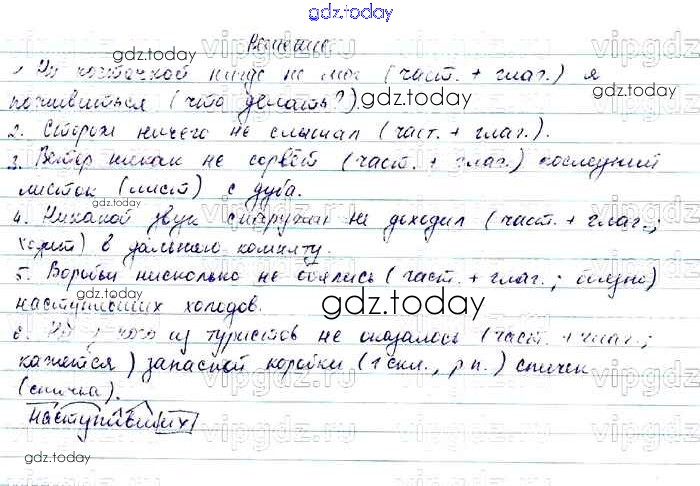 gdz.today
Решение.
1. Ни косточкой нигде не мог (част. + глаг.) я
поживиться (что делать?).
2. Сторож ничего не слышал (част. + глаг.).
3. Ветер никак не сорвёт (част. + глаг.) последний
листок (лист) с дуба.
4. Никакой звук снаружи не доходил (част. + глаг.;
ходит) в дальнюю комнату.
5. Воробьи нисколько не боялись (част. + глаг.;
наступивших холодов.
6. Ни у кого из туристов не оказалось (част. + глаг.;
кажется) запасной коробки (1 скл., р.п.) спичек
(спичка).
наступивших
gdz.today